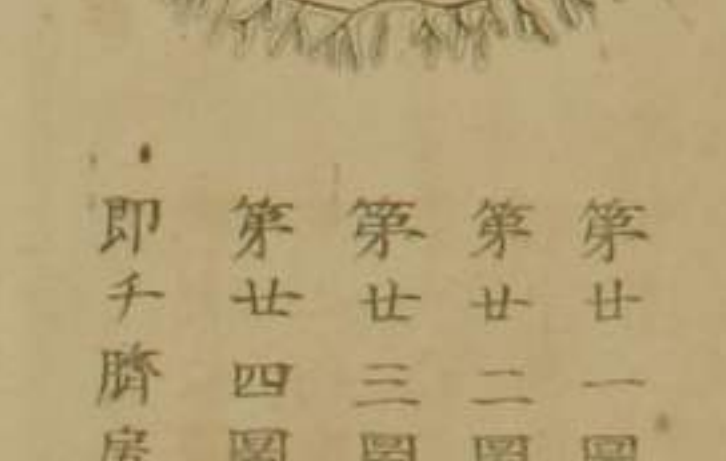 第廿一圖
第廿二圖
第廿三圖
第廿四圖
即千臍房